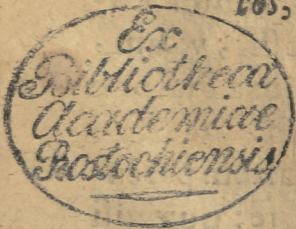 cos,
Ex
Bibliotheca
Academiae
Rostochiensis